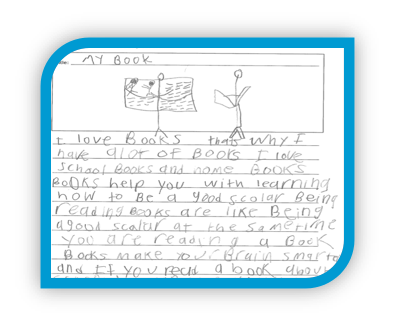 MY BOOK
I love Books thats why I
have alot of Books I love
School Books and home BOOKS
BOOKS help you with learning
how to Be a good scolar Being
reading Books are like Being
agood scalar at the sametime
you are reading a Book
Books make your Brain smarte
and If you read a book about